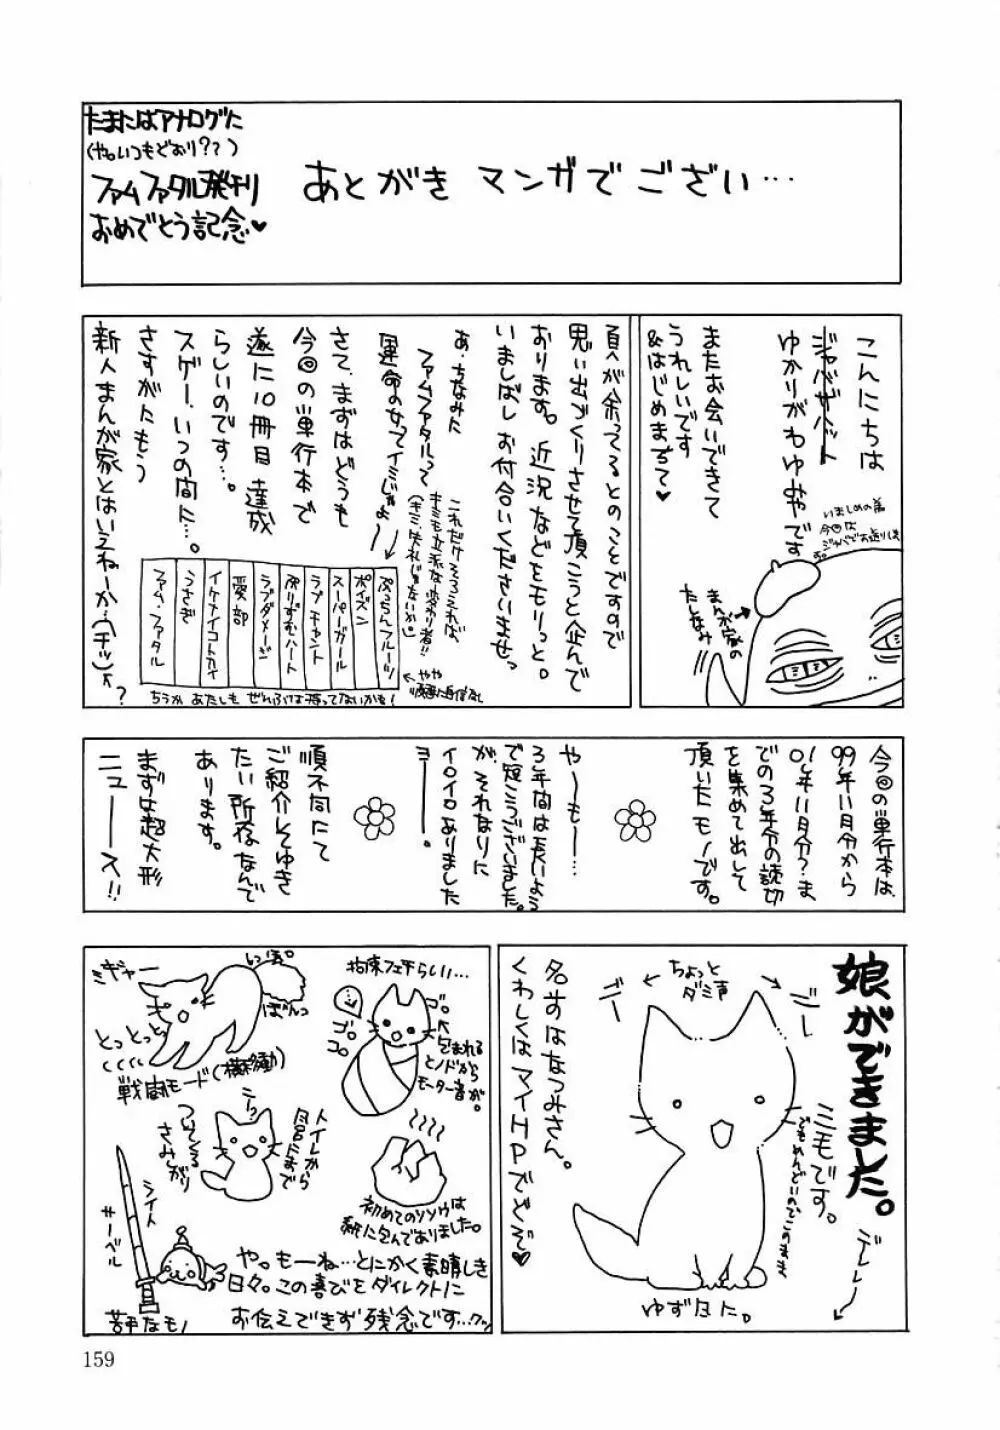 たまにはアナログに
(や、いつもどおり??)
ファムファタル発刊
おめでとう記念♥
あとがき マンガでござい…
こんにちは
ジャバザハット
ゆかりがわゆやです
またお会いできて
うれしいです
&はじめまちて♥
いましめの為
今回は
まんが家の
たしなみ
頁が余ってるとのことですので
思い出づくりさせて頂こうと企んで
おります。近況などをモリっと。
いましばし お付合いくださいませっ
あ、ちなみに
ファムファタルって
運命の女ってイミじゃよー
これだけそろえれば、
キミも立派な変わり者!!
(キミ、失礼じゃないか。)
さて、まずはどうも
今回の単行本で
遂に10冊目達成
らしいのです…。
スゲー、いつの間に…。
さすがにもう
新人まんが家とはいえねーか…(チッ)
?
ぷっちんフルーツ
ポイズン
スーパーガール
ラブチャント
ぷりずむハート
ラブダメージ
愛部
イケナイコトカイ
うさぎ
ファム・ファタル
やや
順番に自信なし
ちうか あたしも ぜんぶは持ってないかも!
今回の単行本は、
99年11月分から
01年11月分?ま
での3年分の読切
を集めて出して
頂いたモノです。
や〜も〜…
3年間は長いよう
で短こうございました。
が、それなりに
イロイロありました
ヨー。
順不同にて
ご紹介してゆき
たい所存なんで
あります。
まずは超大形
ニュース!!
娘ができました。
ちょっと
ダミ声
ジー
ゴー
ミモです。
でもめんどいのでこのまま
デレレレ
名前はなつみさん。
くわしくはマイHPでどぞ♥
ゆずなに。
指床フェチらしい…
ゴロゴロ
ゴロ
包まれる
とノドから
モーター音が。
ミギャー
しっぽ。
ぼんっ
とっとっと
戦闘モード(横移動)
ニーっ
トイレから
風呂にまで
ついてくる
さみしがり
初めてのソソウは
紙に包んでありました。
ライト
サーベル
苦手なモノ
や。もーね…とにかく素晴しき
日々。この喜びをダイレクトに
お伝えできず残念です…クッ
159